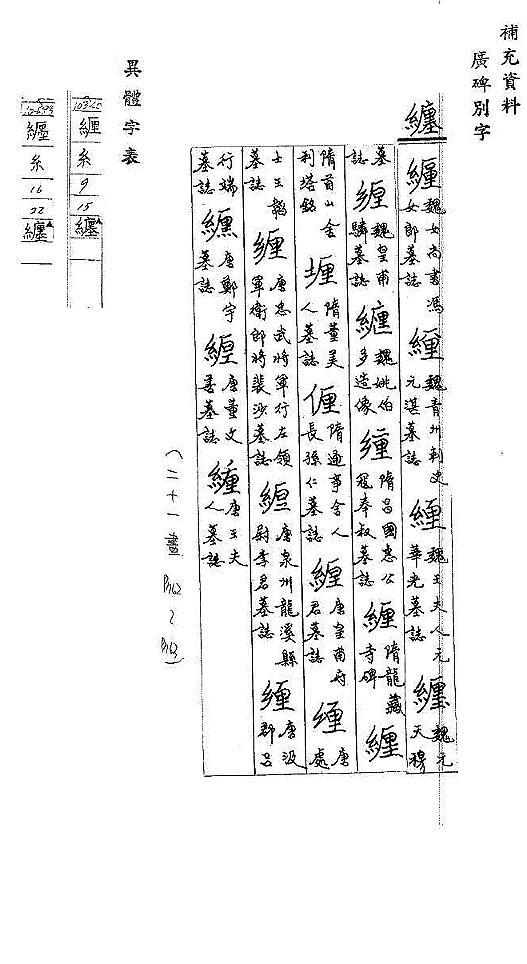 補充資料
廣碑別字
纏
纏 魏女尚書馮女郎墓誌 纏 魏青州刺史元湛墓誌 纏 魏王夫人元華光墓誌 纏 魏元天穆
墓誌 纏 魏皇甫驎墓誌 纏 魏姚伯多造像 纏 隋昌國惠公寇奉叔墓誌 纏 隋龍藏寺碑 纏
隋首山舍利塔銘 㙻 隋董美人墓誌 㒑 隋通事舍人長孫仁墓誌 纏 唐皇甫府君墓誌 纏 唐處
士王 墓誌 纏 唐忠武將軍行左領軍衛郎將裴沙墓誌 纏 唐泉州龍溪縣尉李君墓誌 纏 唐汲郡呂
行端墓誌 纁 唐鄭宇墓誌 纏 唐董文 墓誌 纏 唐王夫人墓誌
(二十一畫 P162~P163)
異體字表
糸
9
15
纏
糸
16
22
纏